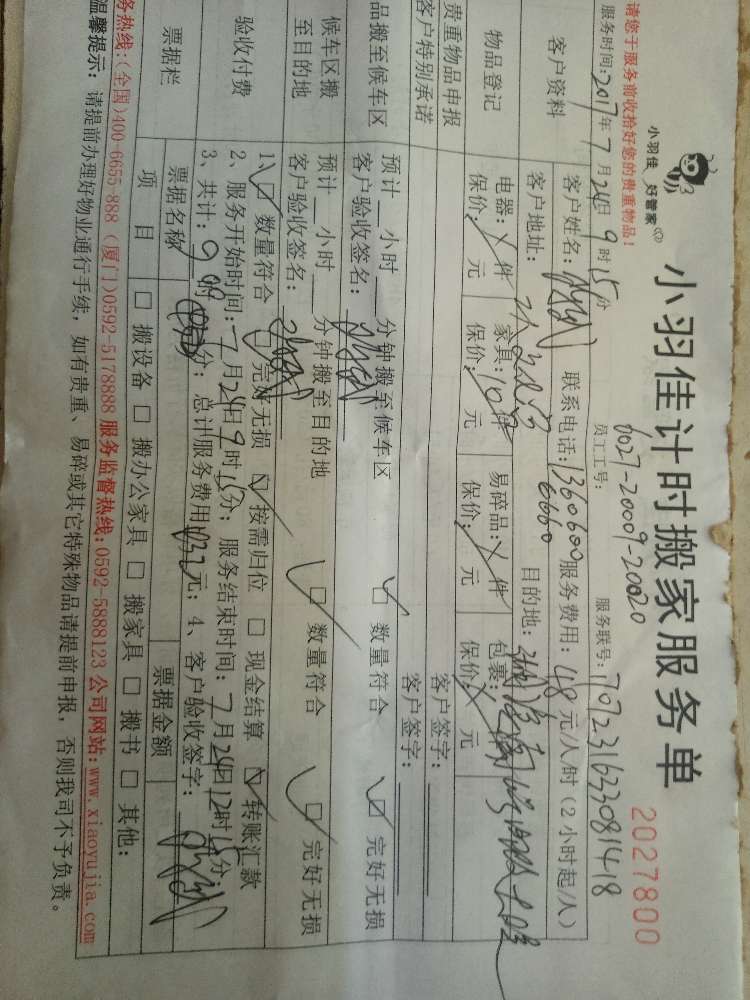 小羽佳 好管家
小羽佳计时搬家服务单
2027800
请您于服务前收拾好您的贵重物品！
6027-20009-20020
员工工号:
服务时间: 2017年7月24日9时15分
服务联号: 707231633081418
客户资料
客户姓名: 联系电话: 1360600 服务费用: 48元/人/时 (2小时起/人)
6660
客户地址: 目的地:
物品登记
电器: 件 家具: 10件 易碎品: 件 包裹: 件
保价: 元 保价: 元 保价: 元 保价: 元
贵重物品申报
客户签字:
客户特别承诺
客户签字:
品搬至候车区
预计__小时__分钟搬至候车区
客户验收签名:
□ 数量符合 □ 完好无损
候车区搬
至目的地
预计__小时__分钟搬至目的地
客户验收签名:
□ 数量符合 □ 完好无损
验收付费
1、□ 数量符合 □ 完好无损 □ 按需归位 □ 现金结算 □ 转账汇款
2、服务开始时间: 7月24日9时15分; 服务结束时间: 7月24日12时15分
3、共计: 9时 分; 总计服务费用 元; 4、客户验收签字:
票据栏
票据名称 票据金额
项目 □ 搬设备 □ 搬办公家具 □ 搬家具 □ 搬书 □ 其他:
务热线:(全国)400-6655-888 (厦门)0592-5178888 服务监督热线:0592-5888123 公司网站:www.xiaoyujia.com
温馨提示: 请提前办理好物业通行手续, 如有贵重、易碎或其它特殊物品请提前申报, 否则我司不予负责。